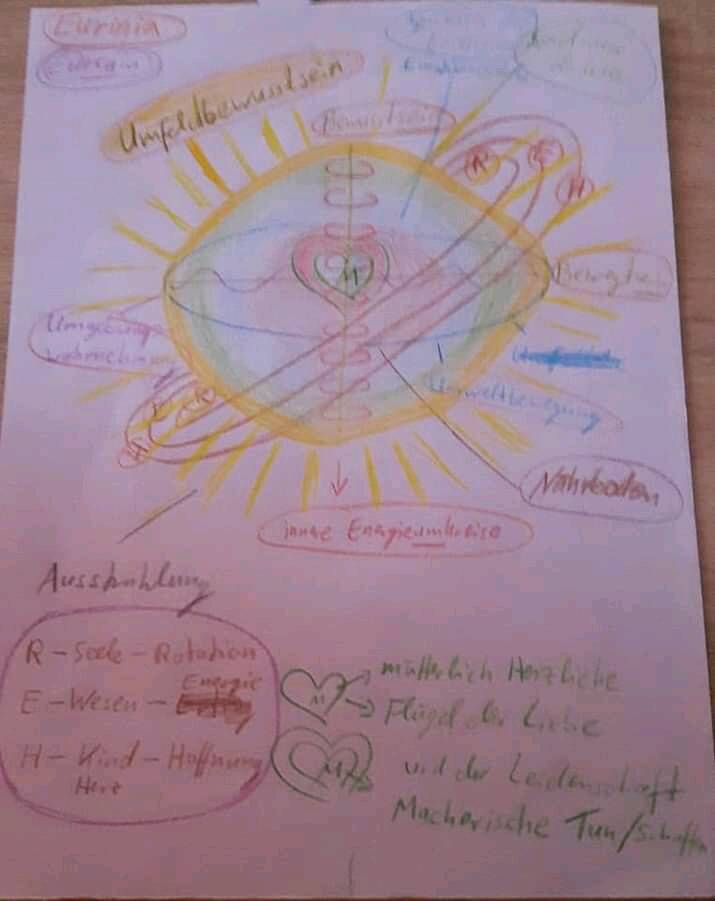 Eurinia
Umfeldbewusstsein
Bewusstsein
R
E
H
M
Umgebung
R
E
H
Umweltbewegung
Nährboden
innere Energieumkreise
Ausstrahlung
R – Seele – Rotation
E – Wesen – Energie
H – Kind – Hoffnung
Herz
M
mütterlich Herzliche
Flügel der Liebe
M
und der Leidenschaft
Macherische Tun/Schaffen